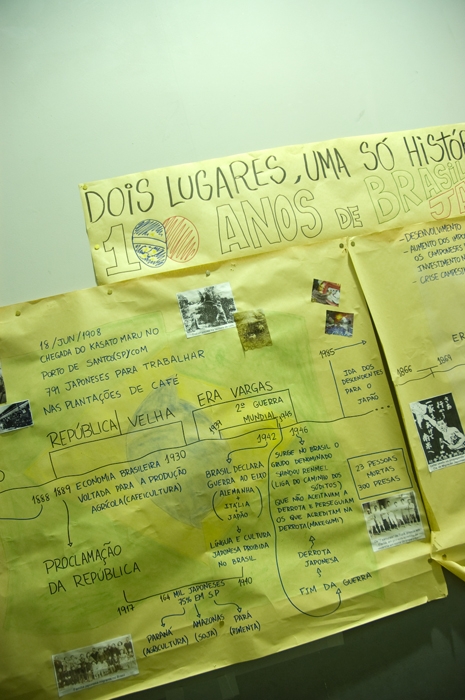 DOIS LUGARES, UMA SÓ HISTÓR
100 ANOS DE BRASIL
JA
- DESENVOLVIMENTO
- AUMENTO DOS IMPO
OS CAMPONESES
INVESTIMENTO N
- CRISE CAMPESI
ER
1866 1869
18/JUN/1908
CHEGADA DO KASATO MARU NO
PORTO DE SANTOS(SP)COM
791 JAPONESES PARA TRABALHAR
NAS PLANTAÇÕES DE CAFÉ
REPÚBLICA VELHA
ERA VARGAS
2ª GUERRA
MUNDIAL
1939 1945
1942 1946
1985
IDA DOS
DESCENDENTES
PARA O
JAPÃO
1888 1889 ECONOMIA BRASILEIRA 1930
VOLTADA PARA A PRODUÇÃO
AGRÍCOLA(CAFEICULTURA)
PROCLAMAÇÃO
DA REPÚBLICA
BRASIL DECLARA
GUERRA AO EIXO
(ALEMANHA
ITÁLIA
JAPÃO)
LÍNGUA E CULTURA
JAPONESA PROIBIDA
NO BRASIL
SURGE NO BRASIL O
GRUPO DENOMINADO
SHINDOU RENMEI
(LIGA DO CAMINHO DOS
SÚDITOS)
QUE NÃO ACEITAVAM A
DERROTA E PERSEGUIAM
OS QUE ACREDITAM NA
DERROTA(MAKEGUMI)
DERROTA
JAPONESA
FIM DA GUERRA
23 PESSOAS
MORTAS
300 PRESAS
1917 1940
164 MIL JAPONESES
75% EM SP
PARANÁ
(AGRICULTURA)
AMAZONAS
(SOJA)
PARÁ
(PIMENTA)